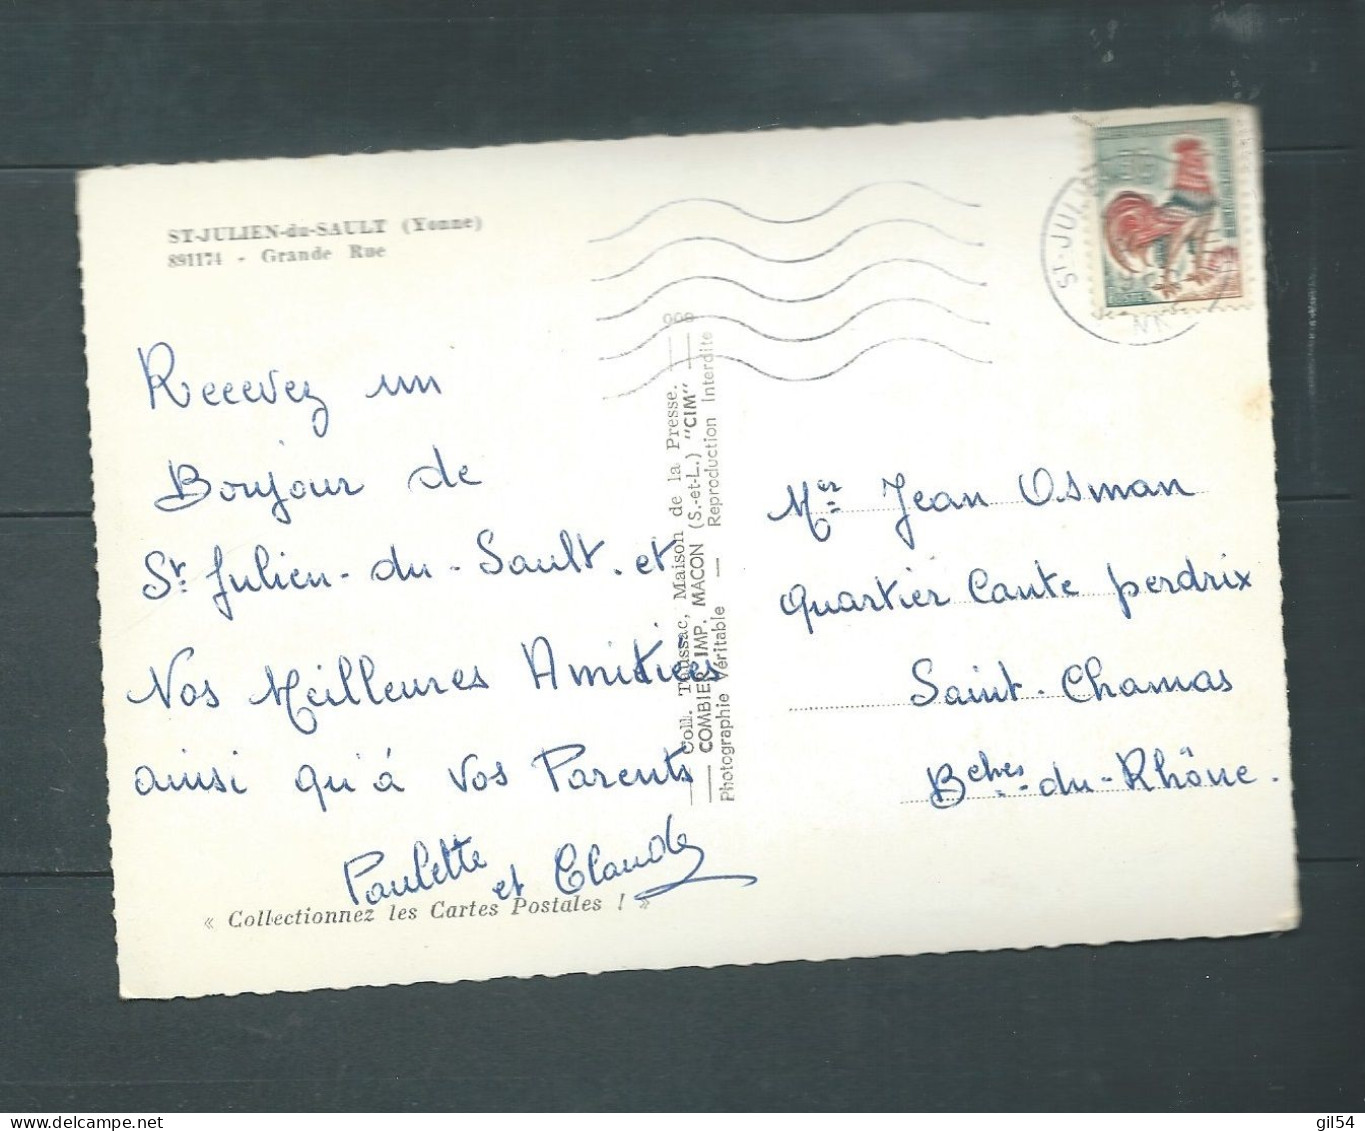 ST-JULIEN-du-SAULT (Yonne)
891174 - Grande Rue
Recevez un
Bonjour de
St Julien-du-Sault. et
Nos Meilleures Amitiées
ainsi qu'à vos Parents
Paulette et Claude
« Collectionnez les Cartes Postales ! »
Coll. Toussac, Maison de la Presse.
COMBIER IMP. MACON (S.-et-L.) "CIM"
Photographie Véritable — Reproduction Interdite
ST-JULI
Mer Jean Osman
Quartier Cante perdrix
Saint-Chamas
Bches-du-Rhône.
gil54